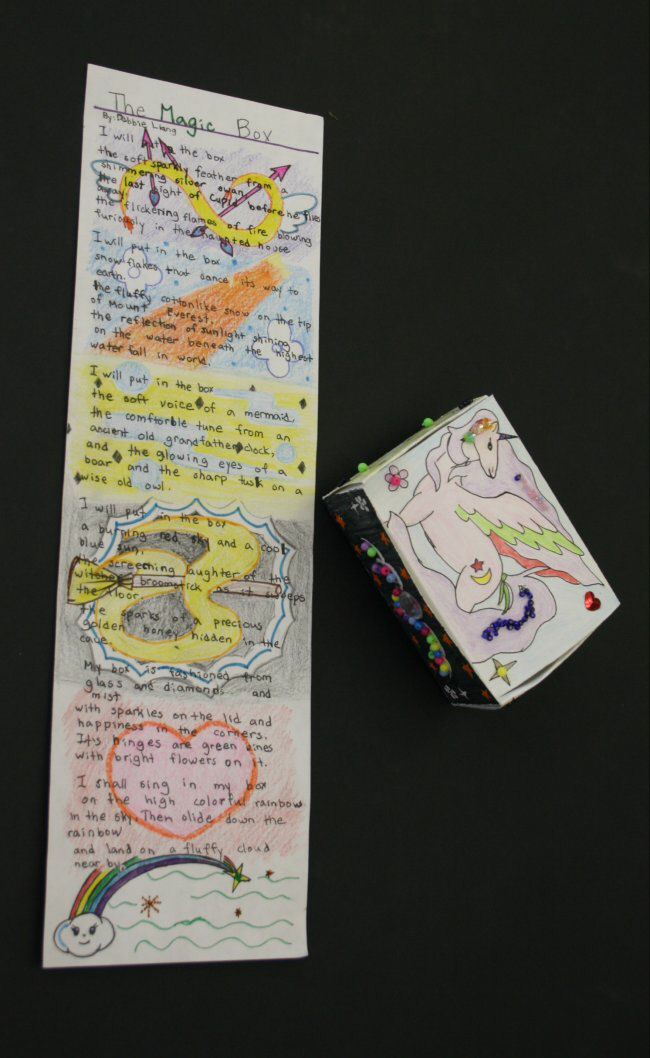 The Magic Box
By: Debbie Liang
I will put in the box
the soft sparkly feather from a
shimmering silver swan,
the last sight of Cupid before he flies
away
the flickering flames of fire blowing
furiously in the haunted house
I will put in the box
snowflakes that dance its way to
earth.
the fluffy cottonlike snow on the tip
of Mount Everest,
the reflection of sunlight shining
on the water beneath the highest
waterfall in world.
I will put in the box
the soft voice of a mermaid,
the comftorble tune from an
ancient old grandfather clock,
and the glowing eyes of a
boar and the sharp tusk on a
wise old owl.
I will put in the box
a burning red sky and a cool
blue sun,
the screeching laughter of the
witches broomstick as it sweeps
the floor.
the sparks of a precious
golden honey hidden in the
cave.
My box is fashioned from
glass and diamonds, and
mist
with sparkles on the lid and
happiness in the corners.
It's hinges are green vines
with bright flowers on it.
I shall sing in my box
on the high colorful rainbow
in the sky. Then slide down the
rainbow
and land on a fluffy cloud
near by.